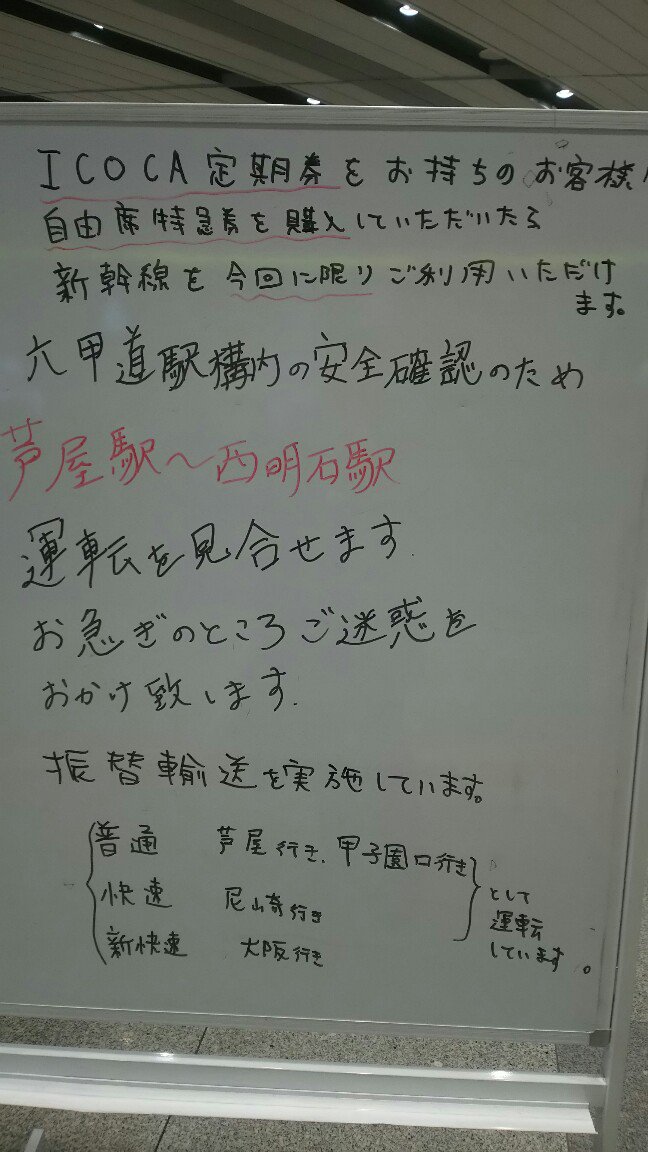 ICOCA定期券をお持ちのお客様
自由席特急券を購入していただいたら
新幹線を今回に限りご利用いただけ
ます。
六甲道駅構内の安全確認のため
芦屋駅～西明石駅
運転を見合せます
お急ぎのところご迷惑を
おかけ致します.
振替輸送を実施しています。
普通 芦屋行き、甲子園口行き
快速 尼崎行き
新快速 大阪行き
として
運転
しています。